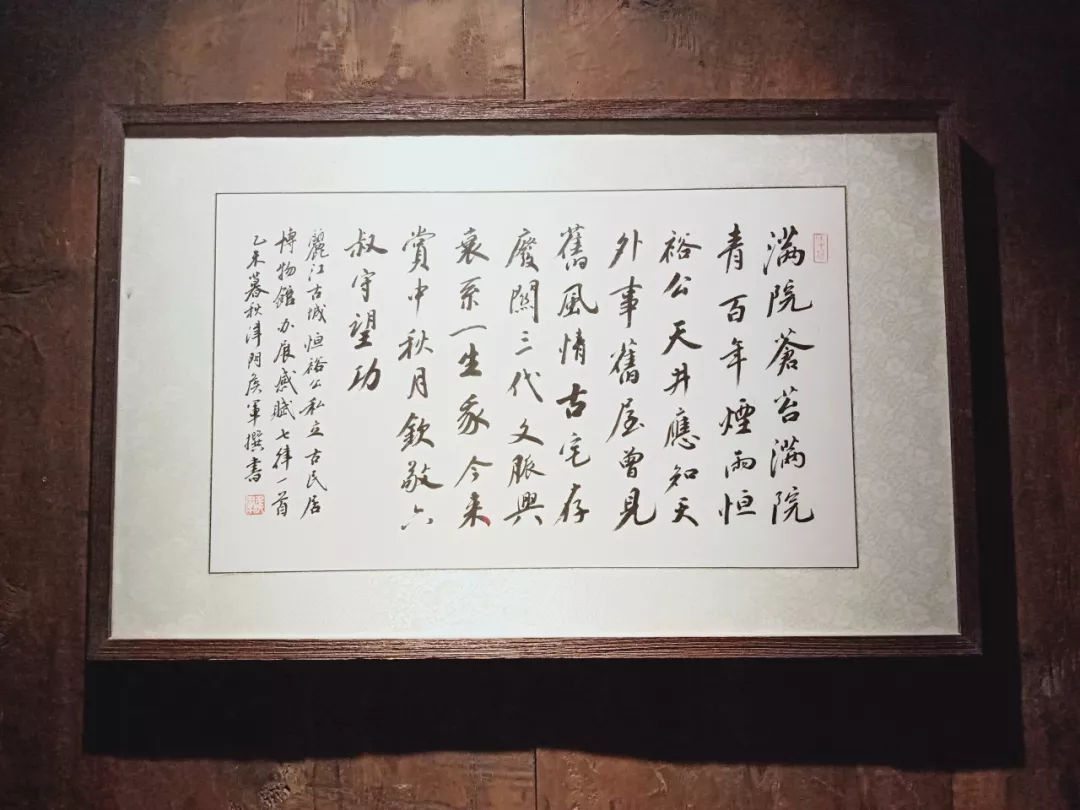 满院蒼苔满院
青百年煙雨恒
裕公天井應知天
外事舊屋曾見
舊風情古宅存
廢關三代文脈興
衰系一生家今来
賞中秋月欽敬六
叔守望功
麗江古城恒裕公私立古民居
博物館办展感賦七律一首
乙未暮秋津門侯軍撰書